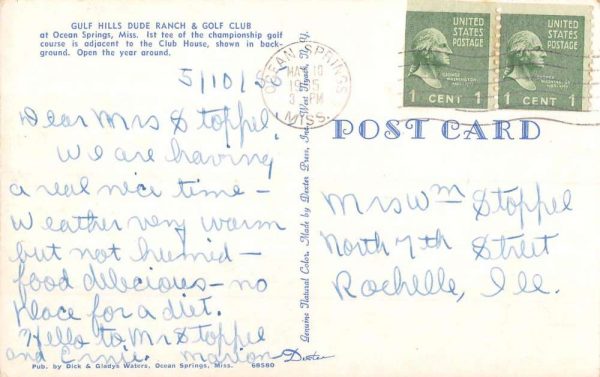 GULF HILLS DUDE RANCH & GOLF CLUB
at Ocean Springs, Miss. 1st tee of the championship golf
course is adjacent to the Club House, shown in back-
ground. Open the year around.
5/10/
Dear Mrs Stoppel,
We are having
a real nice time —
Weather very warm
but not humid —
food delecious — no
place for a diet.
Hello to Mr Stoppel
and Ernie. Marion
Pub. by Dick & Gladys Waters, Ocean Springs, Miss. 68580
Genuine Natural Color, Made by Dexter Press, Inc., West Nyack, N. Y.
Dexter
OCEAN SPRINGS
MAY 10
PM
MISS.
UNITED
STATES
POSTAGE
GEORGE
WASHINGTON
1 CENT 1
UNITED
STATES
POSTAGE
GEORGE
WASHINGTON
1 CENT 1
POST CARD
Mrs Wm Stoppel
North 7th Street
Rochelle, Ill.